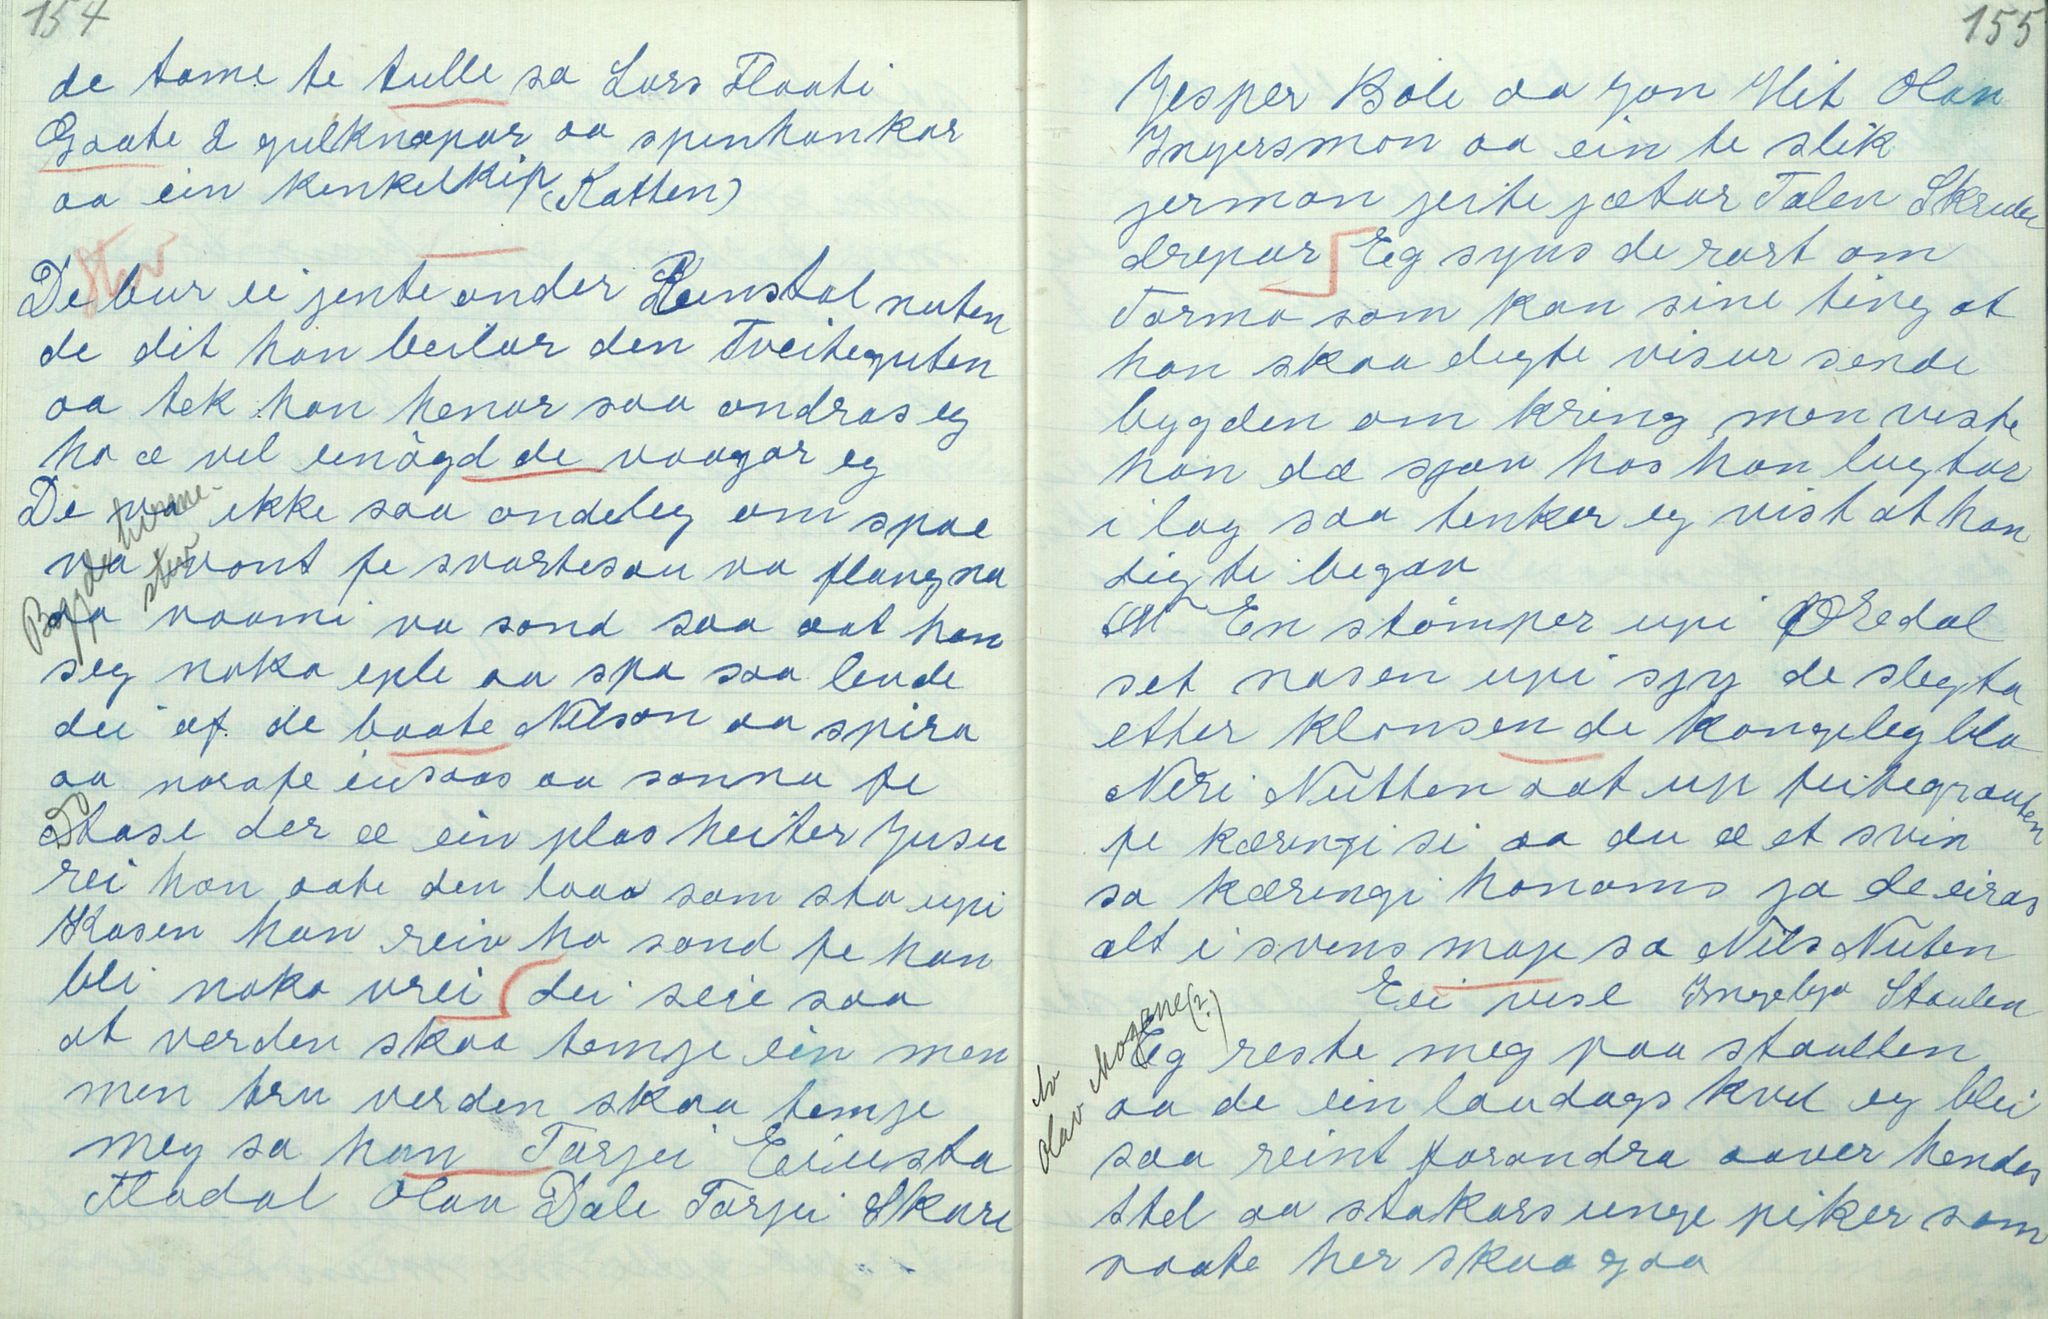 154
de tome te tulle sa Lars Flaati
Gaate 2 gulknapar aa spenhankar
aa ein kenkelkip (Katten)
Stev
De bur ei jente onder Reinstol nuten
de dit han beilar den Tveiteguten
aa tek han henar saa ondras eg
ho æ vel einögd de vaagar eg
De va ikke saa ondeleg om spæ
va vont fe svartesau va flang na
aa vaami va sond saa aat han
seg noko eple aa spa saa levde
dei af de baate Nilson aa spira
aa norafe ensaas aa sonna fe
Stase der æ ein plas heiter Jusu
rei han aate den taaa som sto upi
Kosen han reiv ho sond fe han
blei noko vrei dei seie saa
at verden skaa temje ein men
men tru verden skaa temje
meg sa han Tarjei Eiusta
Flodal Olav Dale Tarjei Skare
Bygdaturane-
stev
155
Jesper Bole aa Jon Hit Olav
Ingersmon aa ein te slik
jermon jeite jætar Talen Skreder
drepar Eg syns de rart om
Tarmo som kan sine ting at
han skaa digte visur sende
bygden om kring men viste
han dæ sjøv hos han lugtar
i lag saa tenker eg vist at han
digte began
En stömper upi Øredal
set nasen upi sjy de slegta
etter klonsen de kongeleg bla
Neri Nutten aat up feitegrauten
fe kæringi si aa du æ et svin
sa kæringi honoms ja de eiras
alt i svens mage sa Nils Nuten
Ei vise Ingebjø Staulen
Eg reste meg paa staullen
aa de ein laudags kvel eg blei
saa reint forandra aaver hendes
stel aa stakars unge piker som
vaate her skaa gaa
Av
Olav Mogane (?)